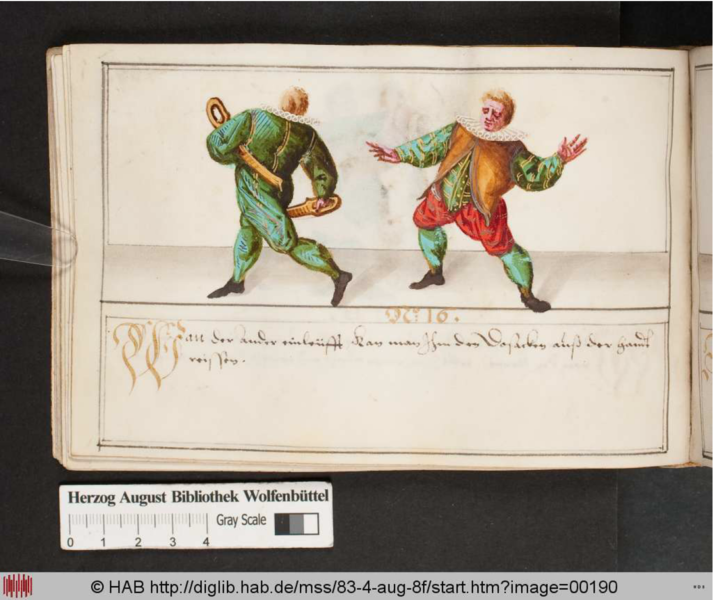 No 16.
Wan der ander einleüfft kan man Ihm den Dusecken auß der handt
reissen.
Herzog August Bibliothek Wolfenbüttel
Gray Scale
0 1 2 3 4
© HAB http://diglib.hab.de/mss/83-4-aug-8f/start.htm?image=00190